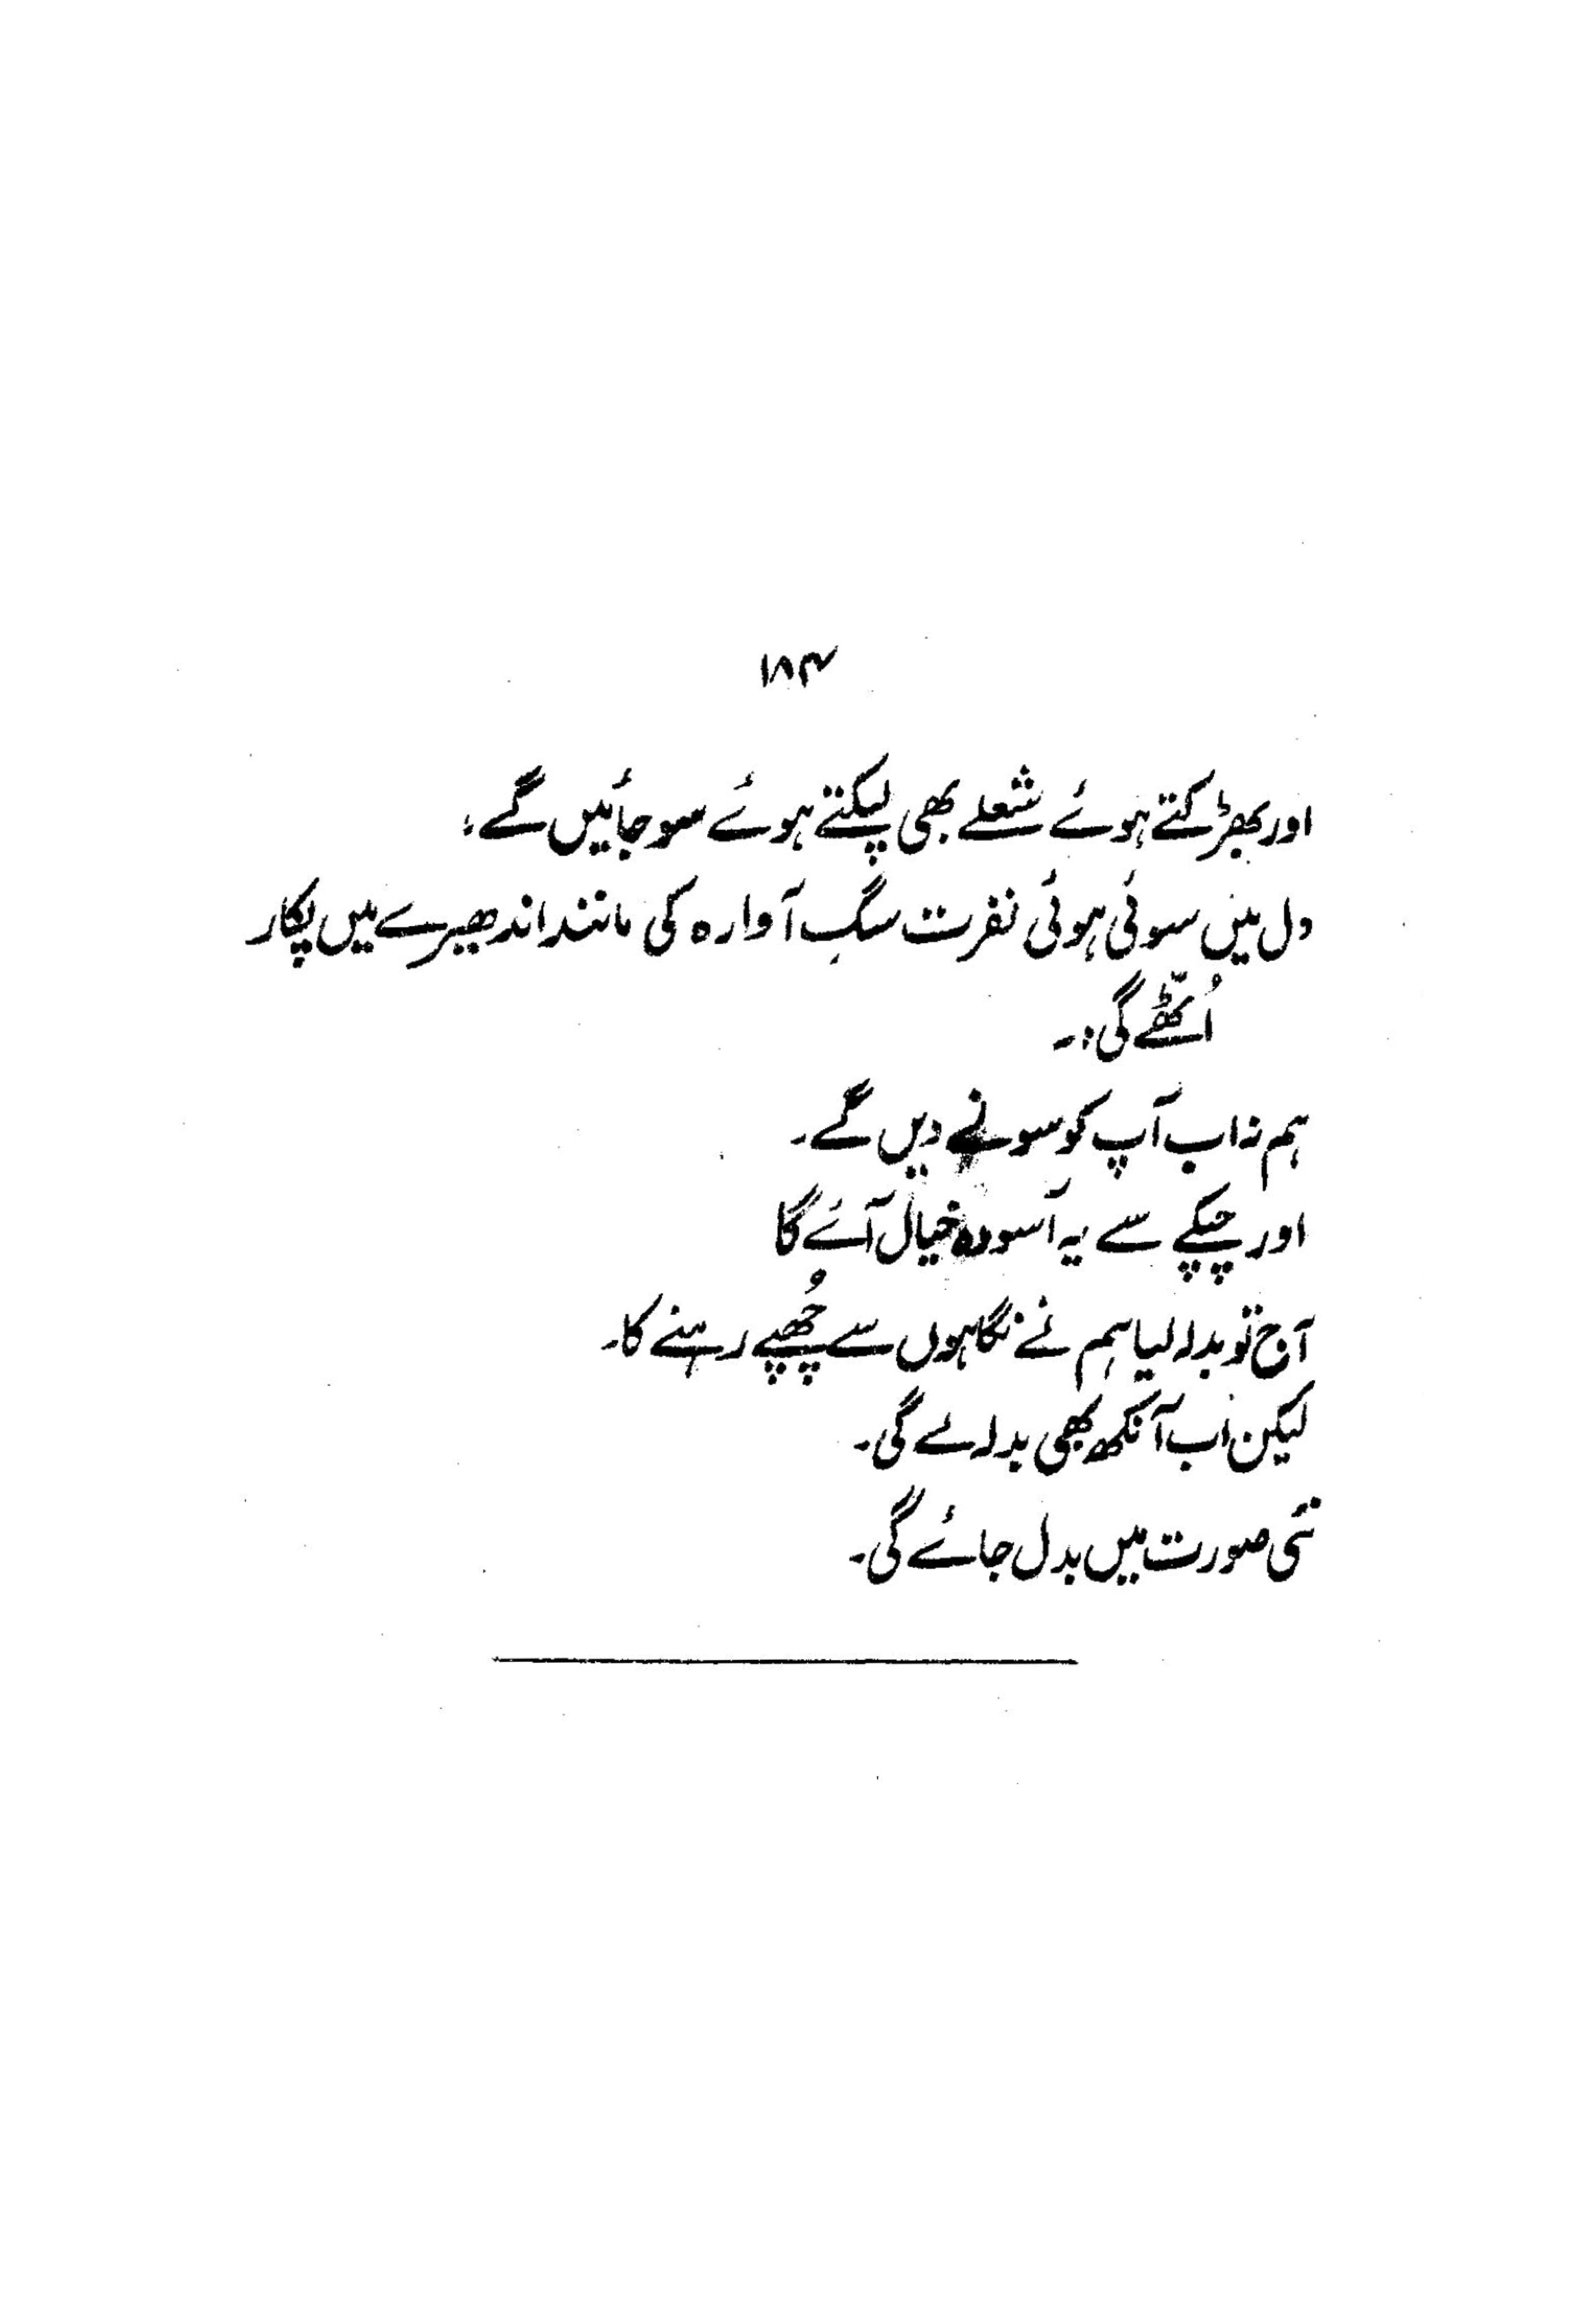 ۱۸۴
اور بھڑکتے ہوئے شعلے بھی لپکتے ہوئے سو جائیں گے،
دل میں سوئی ہوئی نفرت سگِ آوارہ کی مانند اندھیرے میں پکار
اُٹھّے گی:۔
ہم نہ اب آپ کو سونے دیں گے۔
اور چپکے سے یہ آسودہ خیال آئے گا
آج تو بدلا لیا ہم نے نگاہوں سے چُھپے رہنے کا۔
لیکن اب آنکھ بھی بدلا لے گی۔
نئی صورت میں بدل جائے گی۔